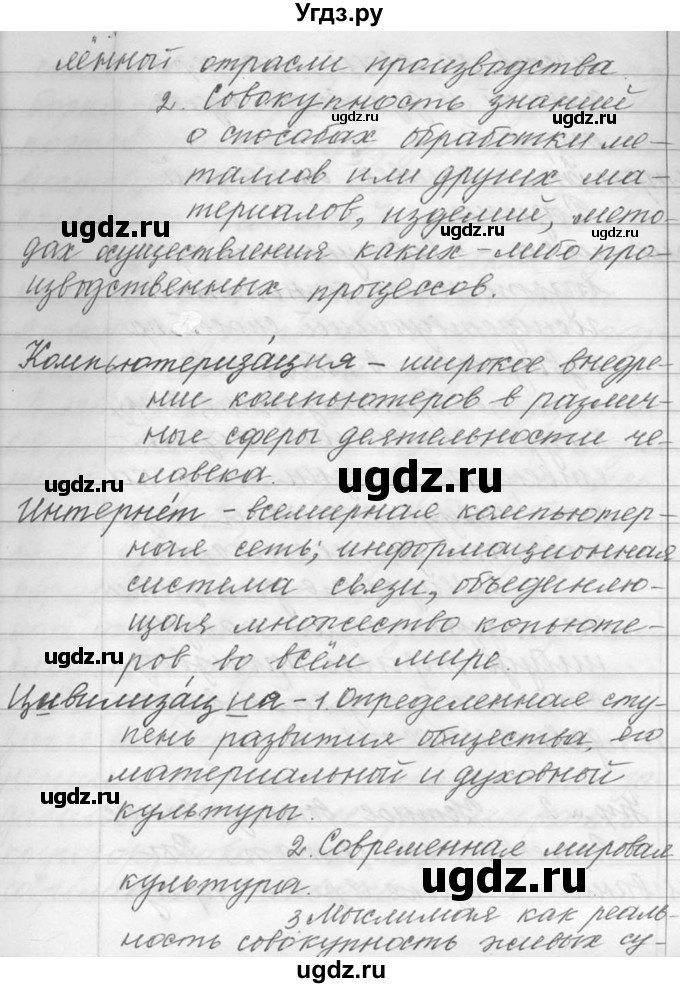 Угдз.ру
лённой отрасли производства.
2. Совокупность знаний
о способах обработки ме-
таллов или других ма-
териалов, изделий, мето-
дах осуществления каких-либо про-
изводственных процессов.
Компьютериза́ция – широкое внедре-
ние компьютеров в различ-
ные сферы деятельности че-
ловека.
Интерне́т – всемирная компьютер-
ная сеть; информационная
система связи, объединяю-
щая множество копьюте-
ров во всём мире.
Цивилиза́ция – 1. Определенная сту-
пень развития общества, его
материальной и духовной
культуры.
2. Современная мировая
культура.
3 Мыслимая как реаль-
ность совокупность живых су-
ugdz.ru
ugdz.ru
ugdz.ru
ugdz.ru
ugdz.ru
ugdz.ru
ugdz.ru